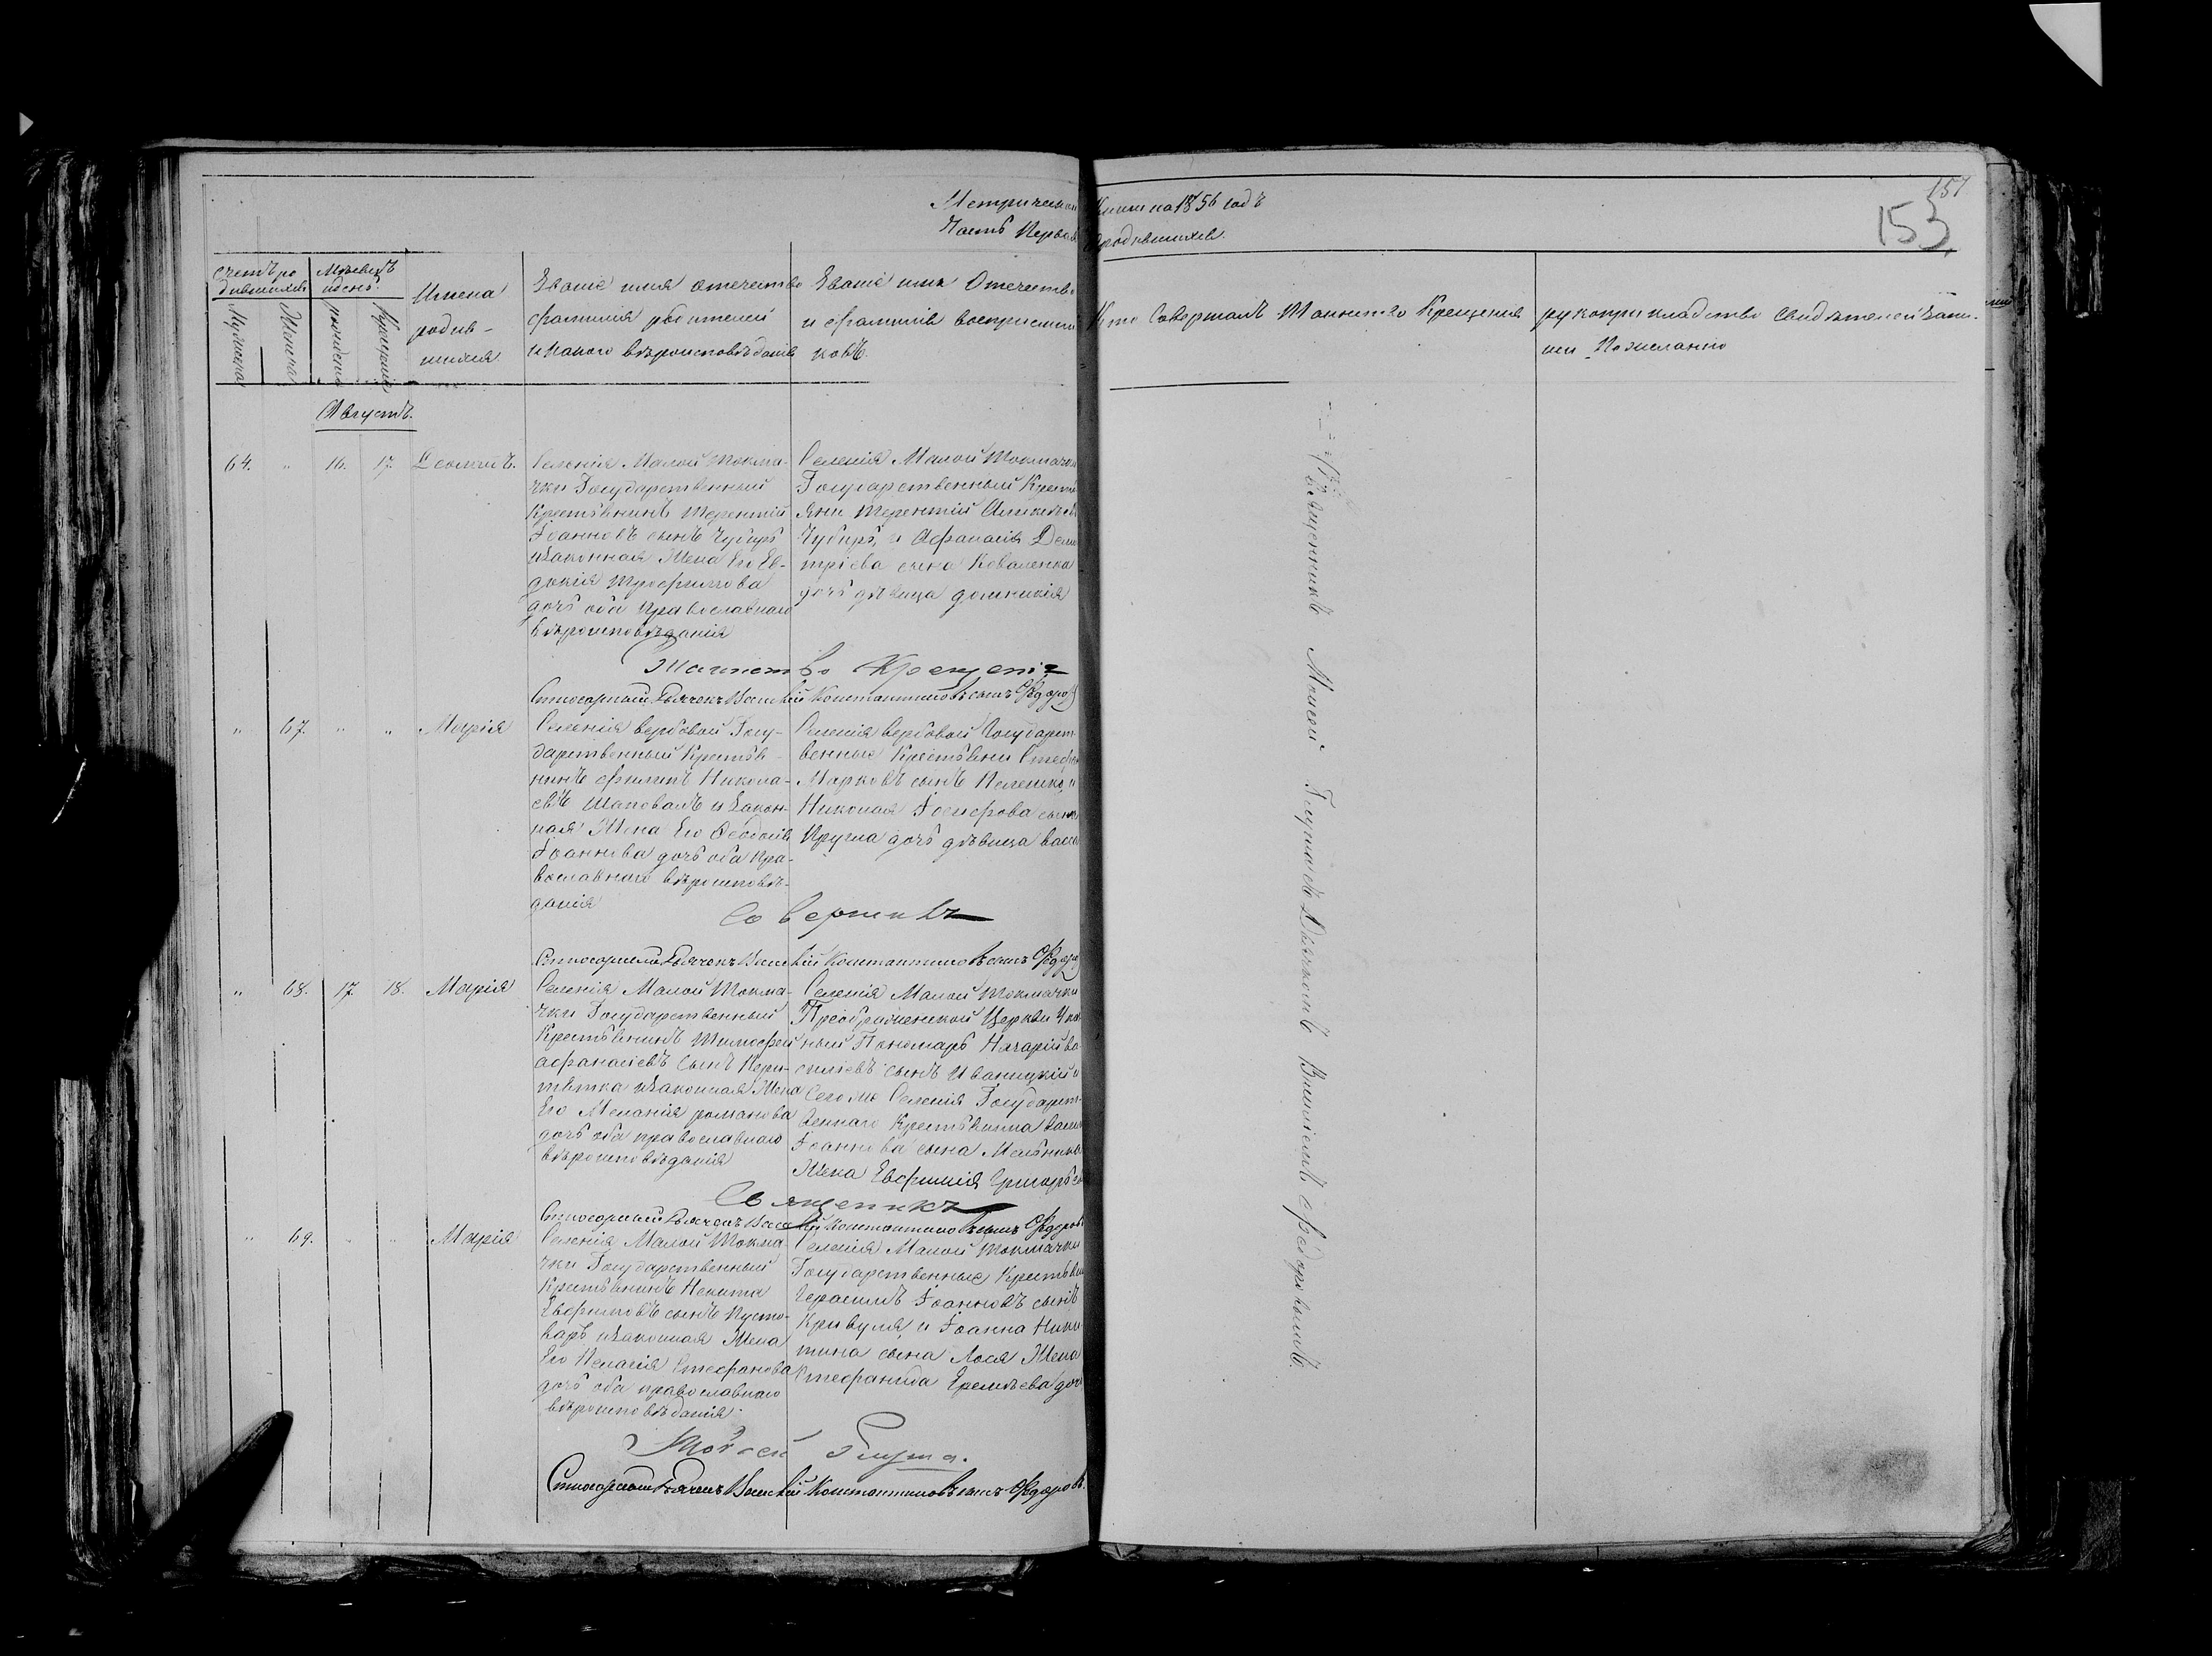 Метрической Книги на 1856 годъ
Часть Первая о родившихся.
151
153
Счетъ родившихся
Мужеска
Женска
Мѣсяцъ и день
рожденія
Крещенія
Имена
родив-
шихся
Званіе имя отечество
фамилія родителей
и какого вѣроисповѣданія
Званіе имя Отечество
и фамилія воспріемни
ковъ.
Кто Совершалъ Таинство Крещенія
рукоприкладство Свидѣтелей запи-
си По желанію
Августъ.
64. " 16. 17.
Селенія Малой Токма-
чки Государственный
Крестьянинъ Терентій
Іоанновъ сынъ Чубирь
и законная Жена Его Ев-
докія Трофимова
дочь оба Православнаго
вѣроисповѣданія
Селенія Малой Токмачки
Государственный Кресть
яни Терентій
Чубирь, и Афанасія Дими
тріева сына Коваленка
дочь дѣвица Домникія
Таинство Крещенія
Стихарный Дьячекъ Василій Константиновъ сынъ Ѳедоровъ
" 67. " " Марія
Селенія Вербовой Госу-
дарственный Крестья-
нинъ Филипъ Никола-
евъ Шаповалъ и Закон-
ная Жена Его Ѳеодосія
Іоаннова дочь оба Пра-
вославнаго вѣроисповѣ-
данія
Селенія Вербовой Государст
венные Крестьяни Стефанъ
Марковъ сынъ Пелешко, и
Николая Іосифова сына
Кругла дочь дѣвица Васса
Совершилъ
Стихарный Дьячекъ Василій Константиновъ сынъ Ѳедоровъ
" 68. 17. 18. Марія
Селенія Малой Токма-
чки Государственный
Крестьянинъ Тимофей
Афанасіевъ Сынъ
и законная Жена
Его Меланія романова
дочь оба православнаго
вѣроисповѣданія
Селенія Малой Токмачки
Преображенской Церкви Ука
зный Пономарь Назарій Ва
силіевъ сынъ Иваницкій и
Сего же Селенія Государст-
веннаго Крестьянина Васил
Іоаннова сына Мельника
Жена Евфимія Григорьева
Священникъ
Стихарный Дьячекъ Василій Константиновъ сынъ Ѳедоровъ
" 69. " " Марія
Селенія Малой Токма-
чки Государственный
Крестьянинъ Никита
Евфимовъ сынъ Пусто-
варъ и законная Жена
Его Пелагія Стефанова
дочь оба православнаго
вѣроисповѣданія.
Селенія Малой Токмачки
Государственные Крестьяни
Герасимъ Іоанновъ сынъ
Кривуля, и Іоанна Ники
тина сына Лося Жена
Стефанида Еремѣева дочь
Моѵсей Глума.
Стихарный Дьячекъ Василій Константиновъ сынъ Ѳедоровъ.
Священникъ Моисей Глумасъ Дьячкомъ Василіемъ Ѳедоровымъ.